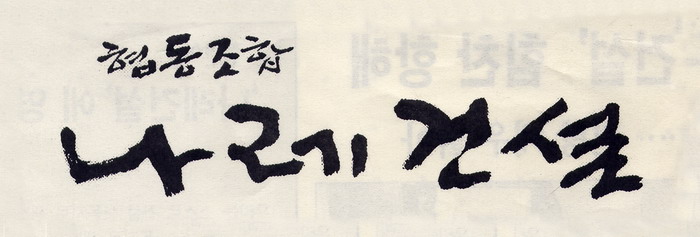 협동조합
나레건설